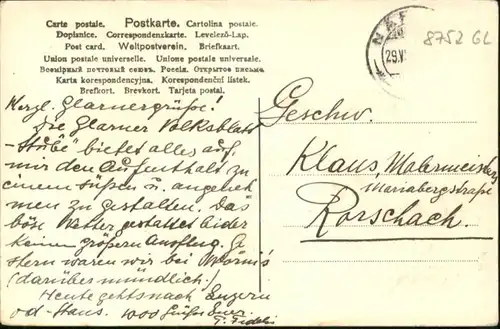 Carte postale. Postkarte. Cartolina postale.
Dopisnice. Correspondenzkarte. Levelező-Lap.
Post card. Weltpostverein. Briefkaart.
Union postale universelle. Unione postale universale.
Всемірный почтовый союзъ. Россія. Открытое письмо.
Karta korespondencyjna. Korespondenční listek.
Brefkort. Brevkort. Tarjeta postal.
8752 GL
29.V
Herzl. Glarnergrüsse!
Die Glarner Volksblatt
-Stube bietet alles auf,
mir den Aufenthalt zu
einem süssen u. angeneh
men zu gestalten. Das
böse Wetter gestattet leider
keinen grössern Ausflug. Ge
stern waren wir bei
(darüber mündlich.)
Heute gehts nach Luzern
1000 Grüsse Euer
Geschw.
Klaus, Malermeister
Mariabergstrasse
Rorschach.